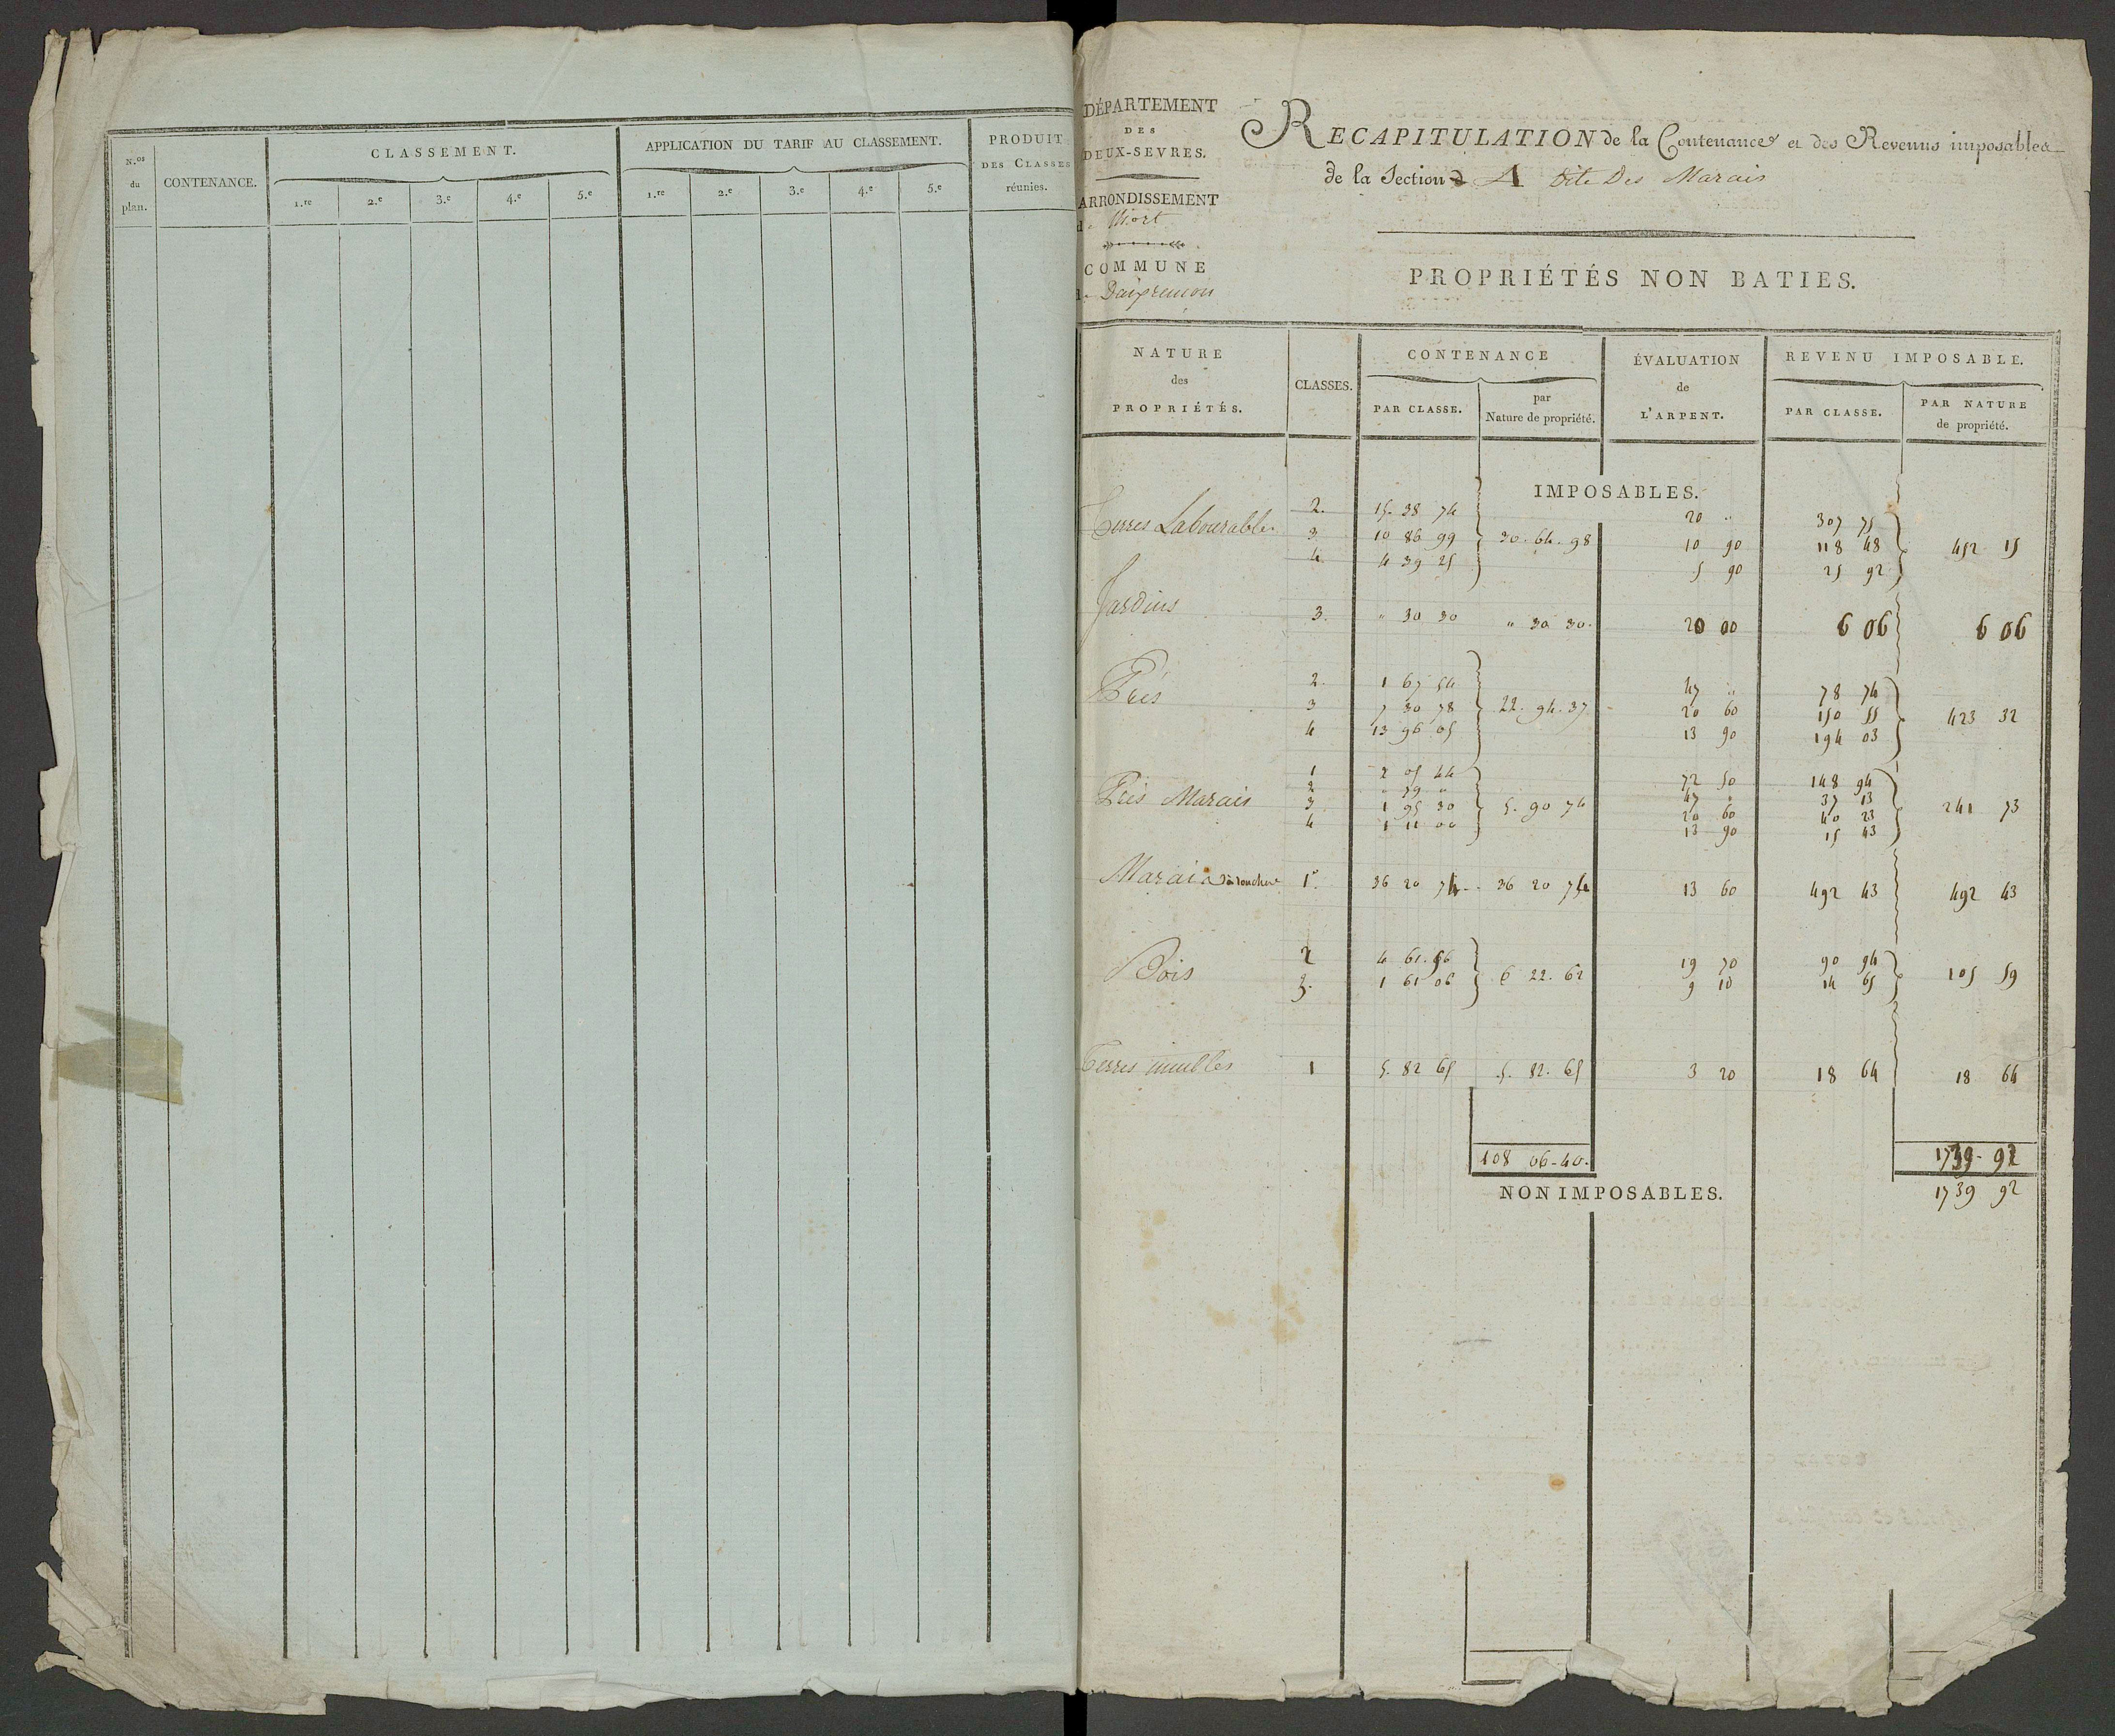 N.os du plan.
CONTENANCE.
CLASSEMENT.
1.re 2.e 3.e 4.e 5.e
APPLICATION DU TARIF AU CLASSEMENT.
1.re 2.e 3.e 4.e 5.e
PRODUIT
DES CLASSES
réunies.
DÉPARTEMENT
DES
DEUX-SEVRES.
ARRONDISSEMENT
de Niort
COMMUNE
RECAPITULATION de la Contenance et des Revenus imposables
de la Section A dite Des Marais
PROPRIÉTÉS NON BATIES.
NATURE
des
PROPRIÉTÉS.
CLASSES.
CONTENANCE
PAR CLASSE.
par
Nature de propriété.
ÉVALUATION
de
L'ARPENT.
REVENU IMPOSABLE.
PAR CLASSE.
PAR NATURE
de propriété.
IMPOSABLES.
Terres Labourables
2. 15. 38 74 20 " 307 75
3 10 86 99 30. 64. 98 10 90 118 48 452 15
4 4 39 25 5 90 25 92
Jardins 3. " 30 30 " 30 30. 20 00 6 06 6 06
Prés
2. 1 67 54 47 " 78 74
3 7 30 78 22. 94. 37 20 60 150 55 423 32
4 13 96 05 13 90 194 03
Prés Marais
1 2 05 44 72 50 148 94
2 " 79 " 47 " 37 13
3 1 95 30 5. 90 74 20 60 40 23 241 73
4 1 11 00 13 90 15 43
Marais 1re. 36 20 74 36 20 74 13 60 492 43 492 43
Bois
2 4 61. 56 19 70 90 94
3. 1 61 06 6 22. 62 9 10 14 65 105 59
Terres 1 5. 82 65 5. 82. 65 3 20 18 64 18 64
108 06-40. 1739-92
NON IMPOSABLES.
1739 92